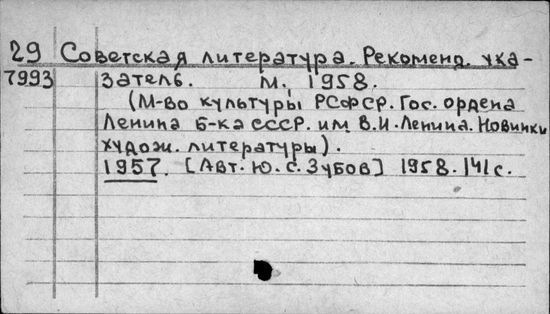 29 Советская литература. Рекоменд. ука-
7993 затель. М., 1958.
(М-во культуры РСФСР. Гос. ордена
Ленина Б-ка СССР. им В.И. Ленина. Новинки
худож. литературы).
1957. [Авт. Ю. С. Зубов] 1958. 141 с.